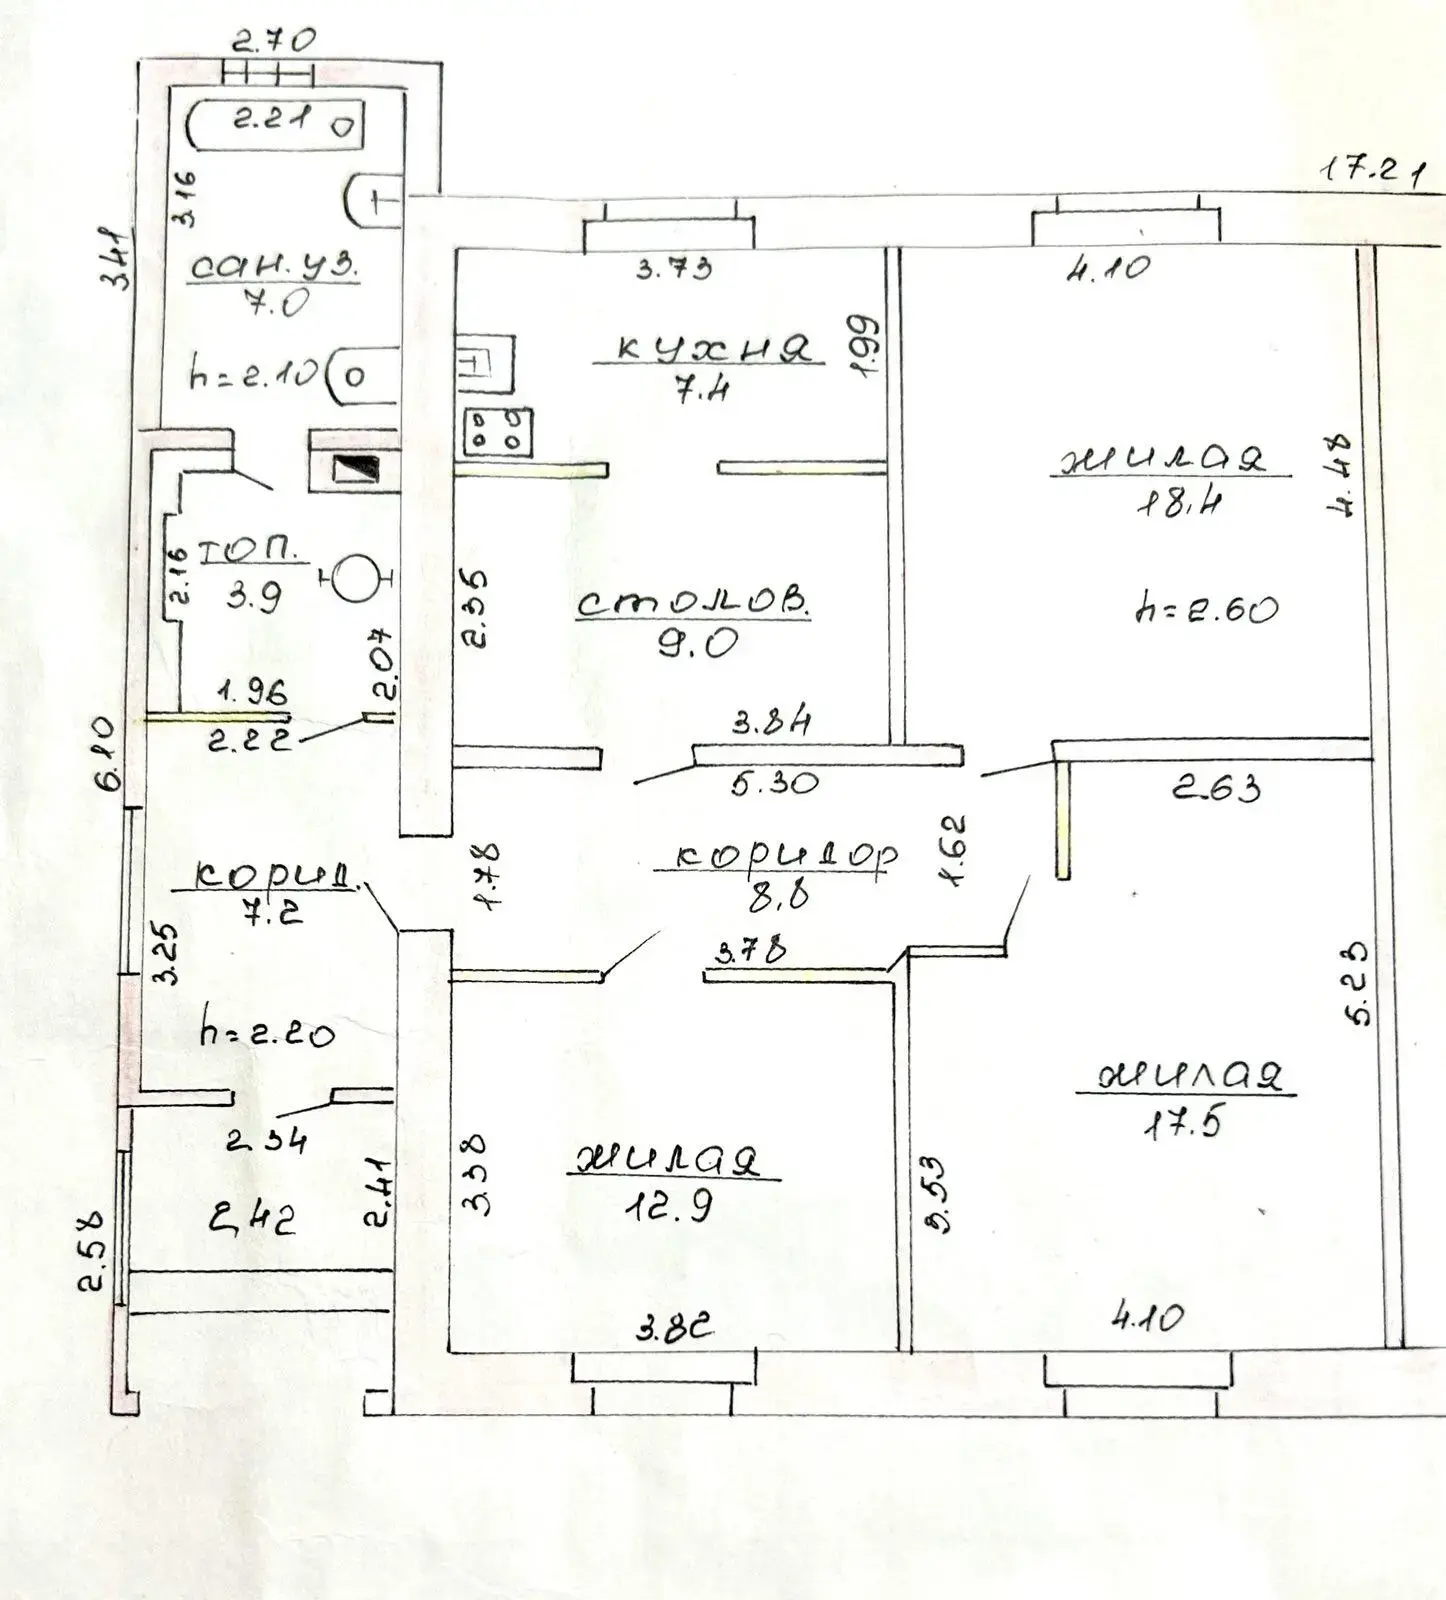 2.70
2.21
17.21
3.16
3.41
сан.уз.
7.0
3.73
4.10
1.99
кухня
7.4
h=2.10
жилая
18.4
4.48
топ.
3.9
2.16
2.35
столов.
9.0
h=2.60
2.07
1.96
2.22
3.84
6.10
5.30
2.63
1.78
коридор
8.8
1.62
корид.
7.2
3.25
3.78
5.23
h=2.20
жилая
17.5
2.34
2.41
3.38
жилая
12.9
5.53
2,42
2.58
3.82
4.10